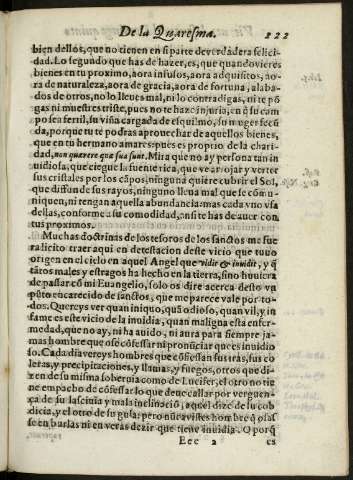 De la Quaresma. 222
bien dellos, que no tienen en si parte de verdadera felici-
dad. Lo segundo que has de hazer, es, que quando vieres
bienes en tu proximo, aora infusos, aora adquisitos, ao-
ra de naturaleza, aora de gracia, aora de fortuna, alaba-
dos de otros, no lo lleues mal, ni lo contradigas, ni te põ-
gas ni muestres triste, pues no te hazẽ injuria, en q̃ su cam-
po sea fertil, su viña cargada de esquilmo, su muger fecũ-
da, porque tu te podras aprouechar de aquellos bienes,
que en tu hermano amares: pues es proprio de la chari-
dad, non quærere quæ sua sunt. Mira que no ay persona tan in
uidiosa, que ciegue la fuente rica, que ve arrojar y verter
sus cristales por los cãpos, ninguna quiere cubrir el Sol,
que diffunde sus rayos, ninguno lleua mal que se comu-
niquen, ni tengan aquella abundancia: mas cada vno vsa
dellas, conforme a su comodidad, onsi te has de auer con
tus proximos.
Muchas doctrinas de los tesoros de los sanctos me fue
ra licito traer aqui en detestacion deste vicio que tuuo
origen en el cielo en aquel Angel que vidit & inuidit, y q̃
tãtos males y estragos ha hecho en la tierra, sino huuiera
de passar cõ mi Euangelio, solo os dire acerca desto vn
pũto encarecido de sanctos, que me parece vale por to-
dos. Quereys ver quan iniquo, quã odioso, quan vil, y in
fame es este vicio de la inuidia, quan maligna esta enfer-
medad, que no ay, ni ha auido, ni aura para siempre ja-
mas hombre que ose cõfessar ni pronũciar que es inuidio
so. Cada dia vereys hombres que cõfiessan sus iras, sus co
leras, y precipitaciones, y llamas, y fuegos, otros que di-
zen de su misma soberuia como de Lucifer, el otro no tie
ne empacho de cõfessar lo que deue callar por verguen-
ça de su lasciuia y mala inclinaciõ, aquel dize de su cob
dicia, y el otro de su gula: pero nũca vistes hombre q̃ osas
se en burlas ni en veras dezir que tiene inuidia. O porq̃
Eee 2 es